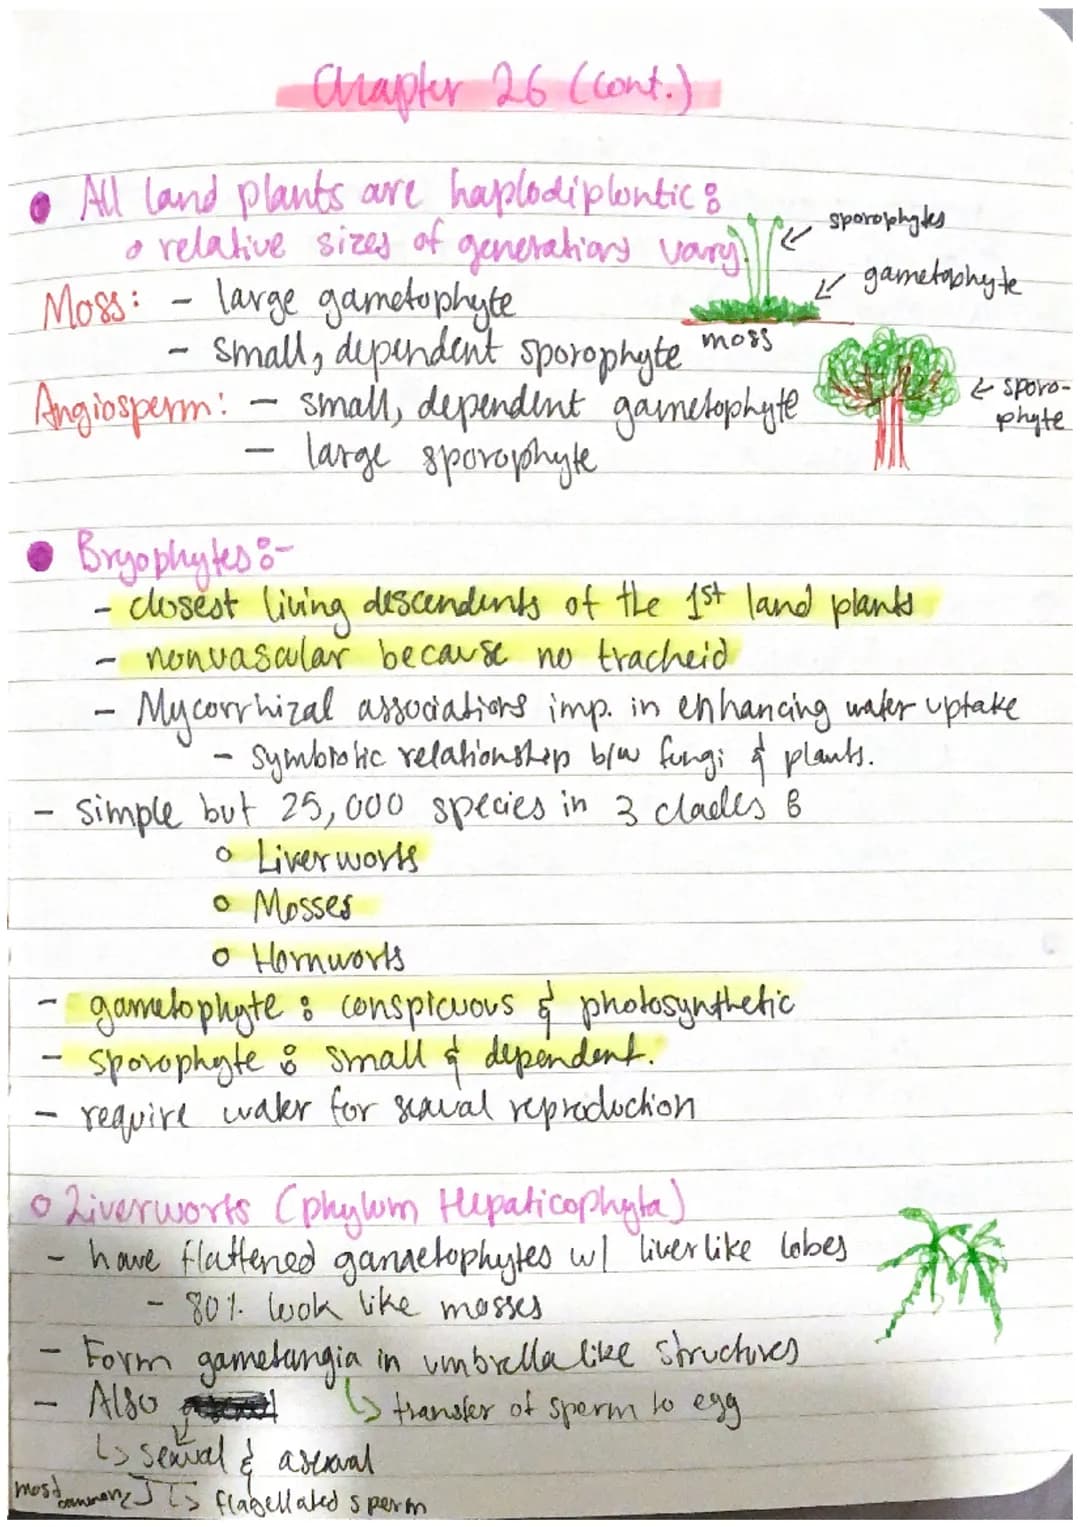 Chapter 26 (cont.)
All land plants are haplodiplontic:
relative sizes of generations vary.
sporophytes
gametophyte
moss
Moss: - large gametophyte
- small, dependent sporophyte
Angiosperm: - small, dependent gametophyte
- large sporophyte
sporo-
phyte
Bryophytes:-
- closest living descendents of the 1st land plants
- nonvascular because no tracheid
- Mycorrhizal associations imp. in enhancing water uptake
- symbiotic relationship b/w fungi & plants.
- simple but 25,000 species in 3 clades :
Liverworts
Mosses
Hornworts
- gametophyte : conspicuous & photosynthetic
- sporophyte : small & dependent.
- require water for sexual reproduction
Liverworts (phylum Hepaticophyta)
- have flattened gametophytes w/ liverlike lobes
- 80% look like mosses
- Form gametangia in umbrella like structures
- Also
transfer of sperm to egg
sexual & asexual
most common
flagellated sperm